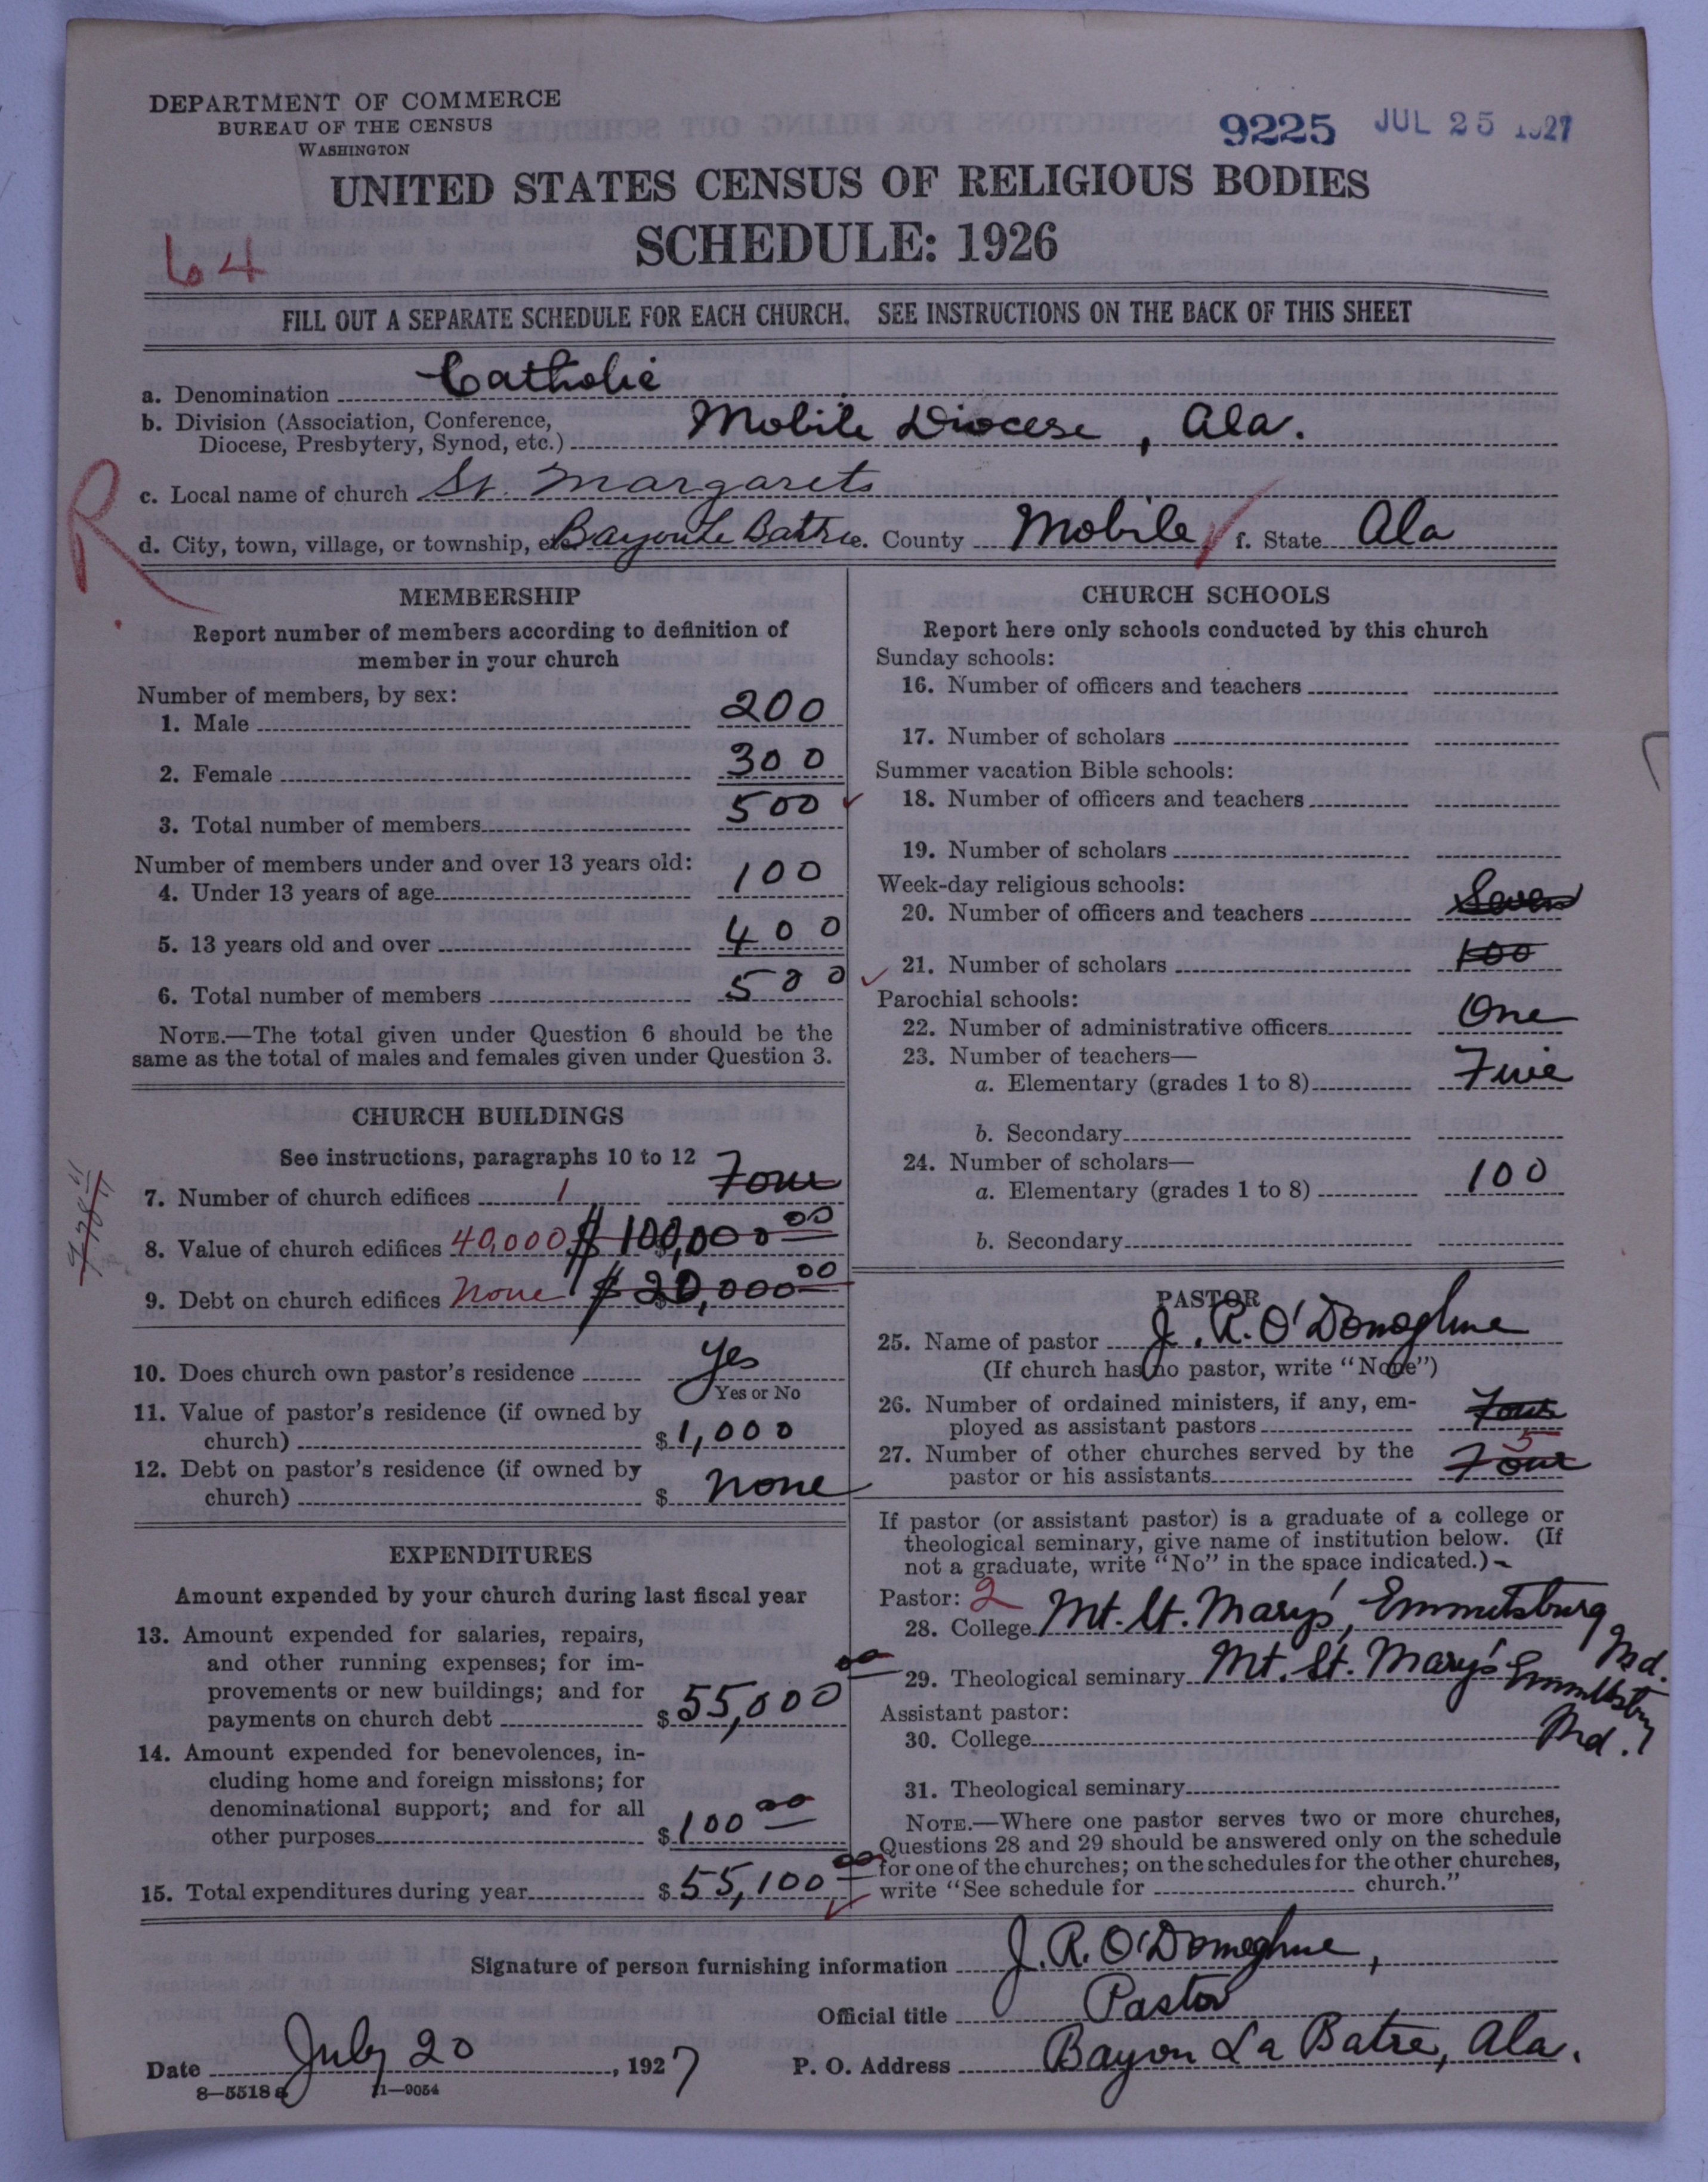 DEPARTMENT OF COMMERCE
BUREAU OF THE CENSUS
WASHINGTON
9225 JUL 25 1927
UNITED STATES CENSUS OF RELIGIOUS BODIES
SCHEDULE: 1926
64
FILL OUT A SEPARATE SCHEDULE FOR EACH CHURCH. SEE INSTRUCTIONS ON THE BACK OF THIS SHEET
a. Denomination Catholic
b. Division (Association, Conference,
Diocese, Presbytery, Synod, etc.) Mobile Diocese, Ala.
R
c. Local name of church St. Margarets
d. City, town, village, or township, etc. Bayou La Battre e. County Mobile f. State Ala
MEMBERSHIP
Report number of members according to definition of
member in your church
Number of members, by sex:
1. Male 200
2. Female 300
3. Total number of members 500
Number of members under and over 13 years old:
4. Under 13 years of age 100
5. 13 years old and over 400
6. Total number of members 500
NOTE.—The total given under Question 6 should be the
same as the total of males and females given under Question 3.
CHURCH BUILDINGS
See instructions, paragraphs 10 to 12
7. Number of church edifices 1 Four
8. Value of church edifices 40,000 $100,000 00
9. Debt on church edifices None $20,000 00
10. Does church own pastor's residence Yes
Yes or No
11. Value of pastor's residence (if owned by
church) $1,000
12. Debt on pastor's residence (if owned by
church) $ None
EXPENDITURES
Amount expended by your church during last fiscal year
13. Amount expended for salaries, repairs,
and other running expenses; for im-
provements or new buildings; and for
payments on church debt $55,000 00
14. Amount expended for benevolences, in-
cluding home and foreign missions; for
denominational support; and for all
other purposes $100 00
15. Total expenditures during year $55,100 00
CHURCH SCHOOLS
Report here only schools conducted by this church
Sunday schools:
16. Number of officers and teachers
17. Number of scholars
Summer vacation Bible schools:
18. Number of officers and teachers
19. Number of scholars
Week-day religious schools:
20. Number of officers and teachers Seven
21. Number of scholars 100
Parochial schools:
22. Number of administrative officers One
23. Number of teachers—
a. Elementary (grades 1 to 8) Five
b. Secondary
24. Number of scholars—
a. Elementary (grades 1 to 8) 100
b. Secondary
PASTOR
25. Name of pastor J. R. O'Donoghue
(If church has no pastor, write "None")
26. Number of ordained ministers, if any, em-
ployed as assistant pastors Four
27. Number of other churches served by the
pastor or his assistants 5 Four
If pastor (or assistant pastor) is a graduate of a college or
theological seminary, give name of institution below. (If
not a graduate, write "No" in the space indicated.)
Pastor: 2
28. College Mt. St. Mary's, Emmitsburg Md.
29. Theological seminary Mt. St. Mary's Emmitsburg Md.
Assistant pastor:
30. College
31. Theological seminary
NOTE.—Where one pastor serves two or more churches,
Questions 28 and 29 should be answered only on the schedule
for one of the churches; on the schedules for the other churches,
write "See schedule for church."
Signature of person furnishing information J. R. O'Donoghue,
Official title Pastor
Date July 20, 1927 P. O. Address Bayou La Batre, Ala.
8—5518 a 11—9054